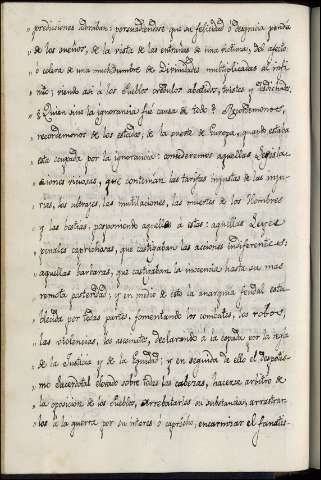 " predicciones adoraban: persuadiendose que su felicidad ó desgracia pendia
" de los sueños, de la vista de las entrañas de una victima, del afecto
" ó colera de una muchedumbre de Divinidades multiplicadas al infi-
" nito; viendo asi á los Pueblos credulos abatidos, tristes y desdichados.
" ¿Quien sino la ignorancia fue causa de todo? Recordemonos,
" recordemonos de los estados, de la suerte de Europa, quando estaba
" esta ocupada por la ignorancia: consideremos aquellas Legisla-
" ciones viciosas, que contenian las tarifas injustas de las inju-
" rias, los ultrajes, las mutilaciones, las muertes de los Hombres
" y las bestias, posponiendo aquellos á estas: aquellas Leyes
" penales caprichosas, que castigaban las acciones indiferentes:
" aquellas barbaras, que castigaban la inocencia hasta su mas
" remota posteridad; y en medio de esto la anarquia feudal esta-
" blecida por todas partes, fomentando los combates, los robos,
" las violencias, los asesinatos, declarando á la espada por la regla
" de la Justicia y de la Equidad: y en seguida de ello el despotis-
" mo sacerdotal elevado sobre todas las cabezas, hacerse arbitro de
" la oposicion de los Pueblos, arrebatarles su substancia, arrastrar-
" los á la guerra por su interes ó capricho, encarnizar el fanatis-